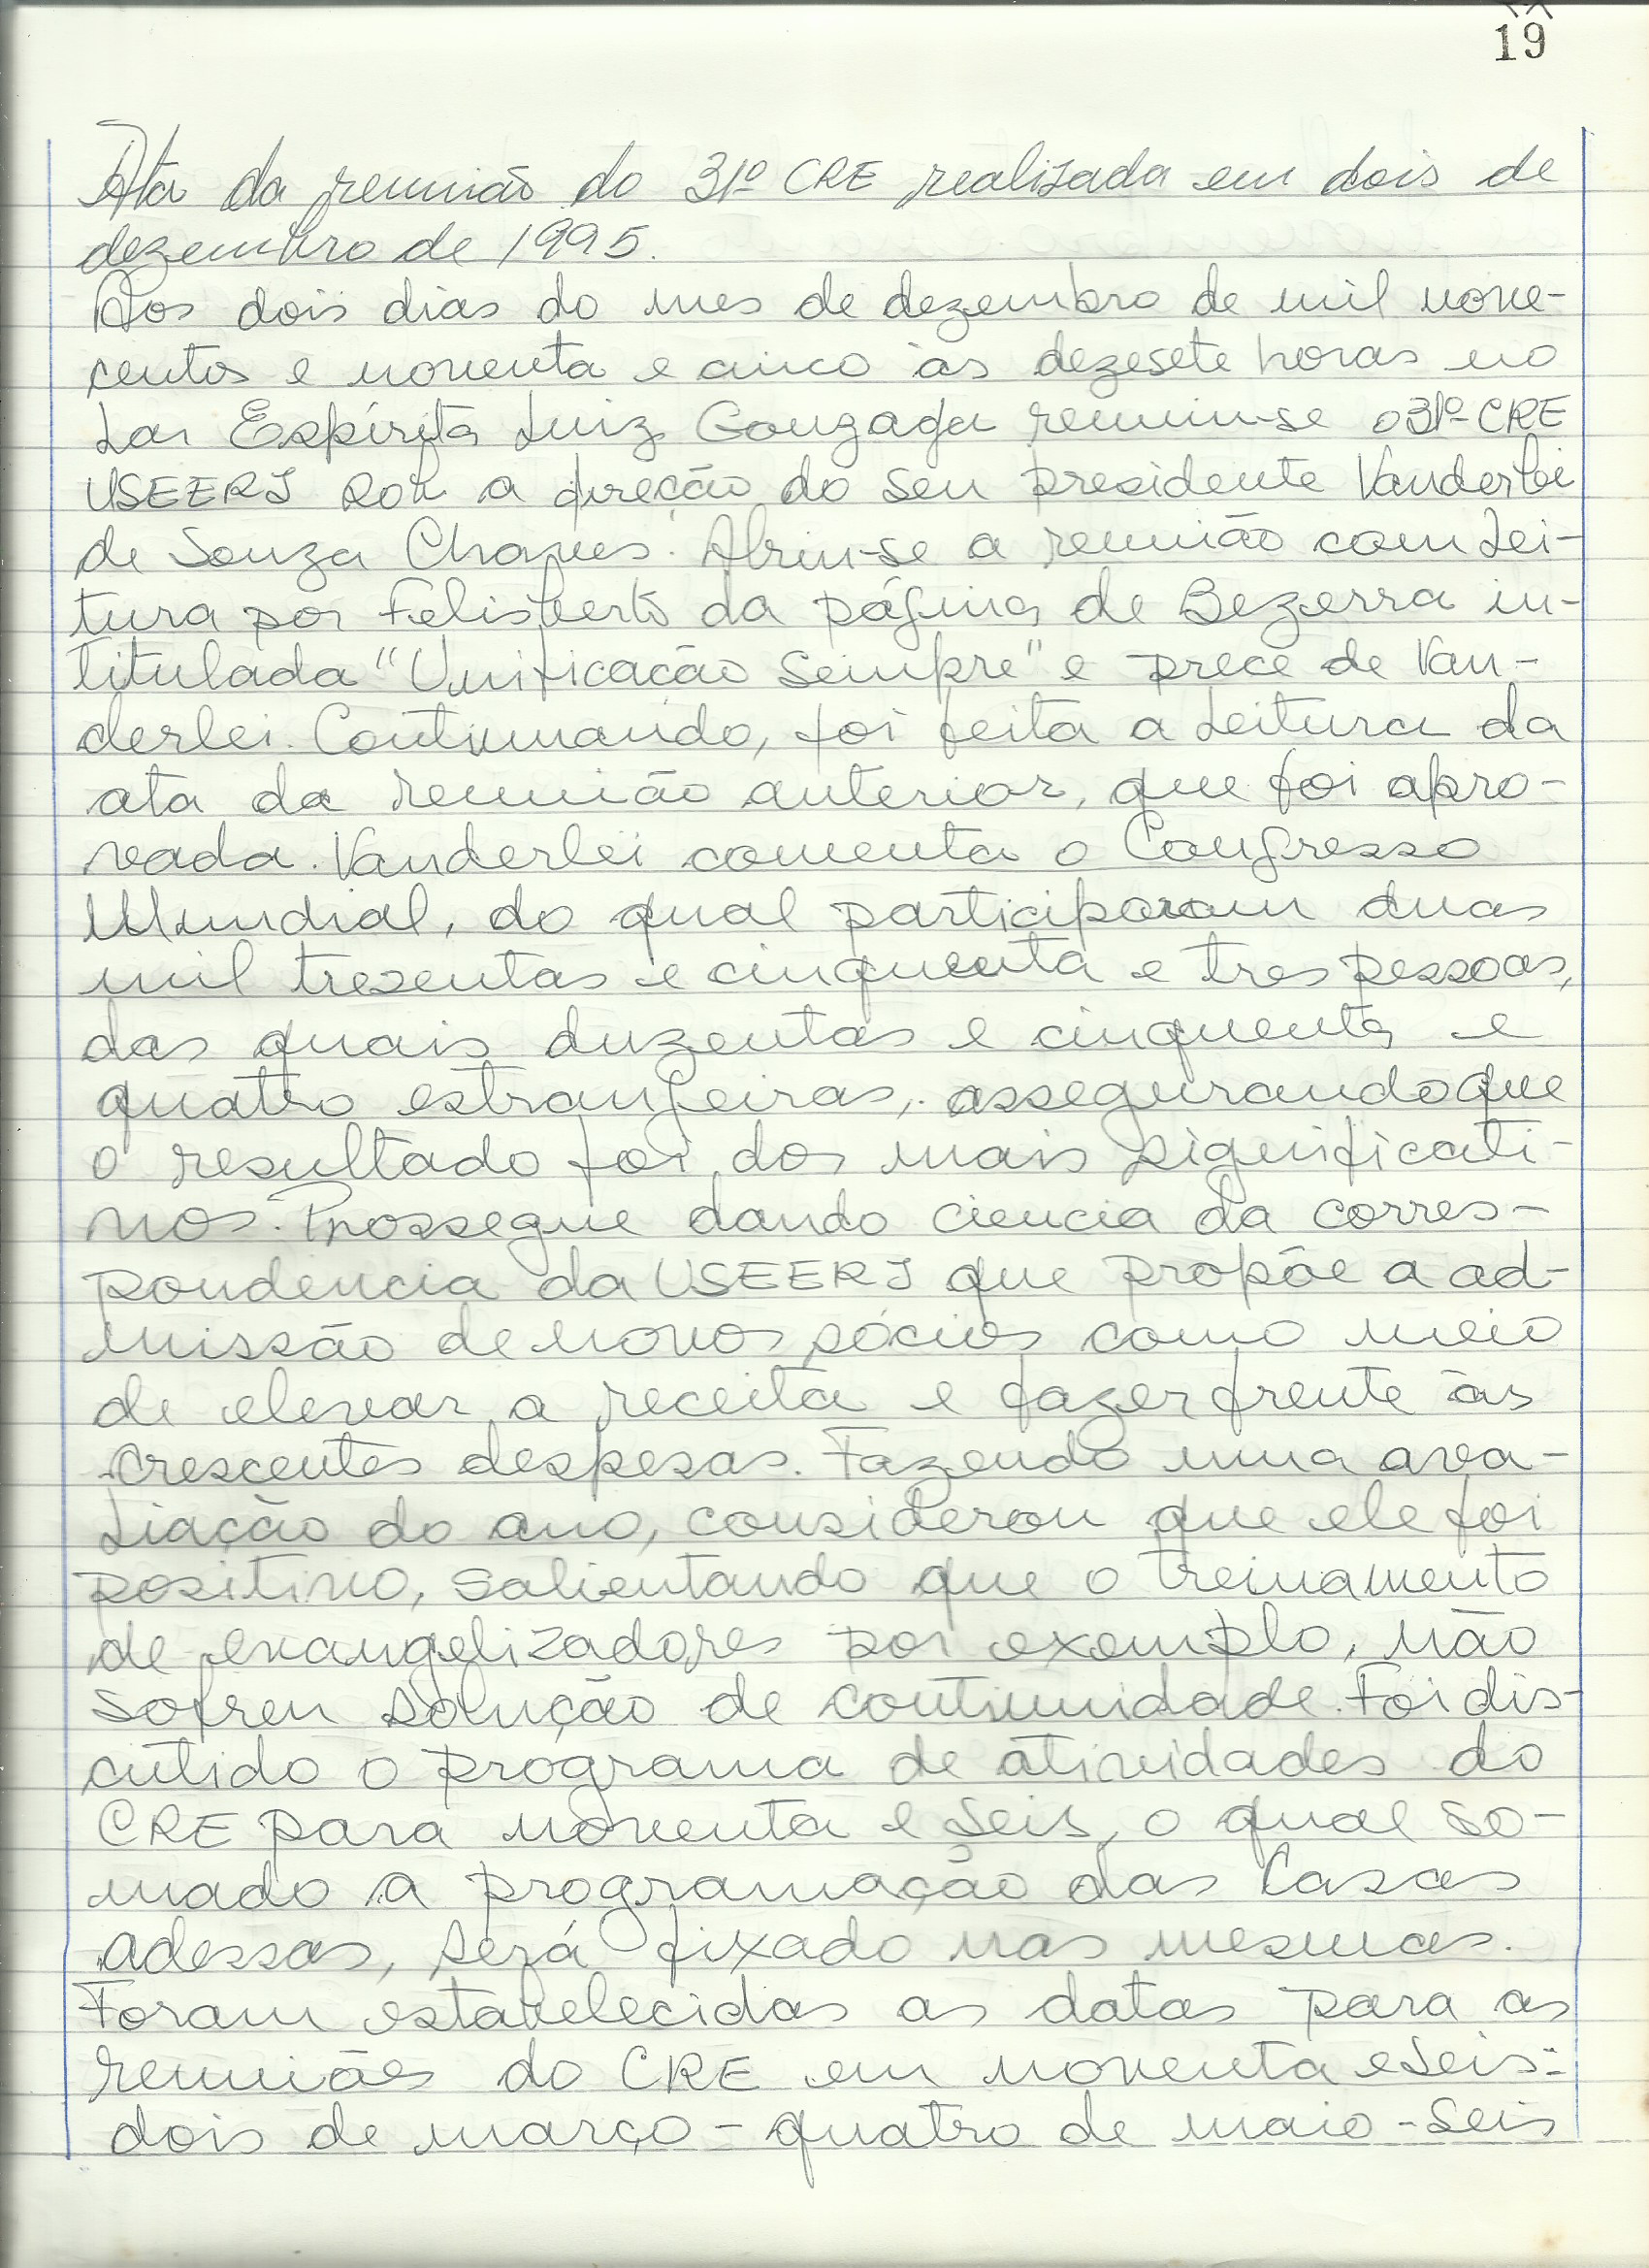 19
Ata da reunião do 31º CRE realizada em dois de
dezembro de 1995.
Aos dois dias do mes de dezembro de mil nove-
centos e noventa e cinco às dezesete horas no
Lar Espírita Luiz Gonzaga reuniu-se o 31º CRE
USEERJ sob a direção do seu presidente Vanderlei
de Souza Chaves. Abriu-se a reunião com Lei-
tura por Felisberto da página de Bezerra in-
titulada "Unificação Sempre" e prece de Van-
derlei. Continuando, foi feita a Leitura da
ata da reunião anterior, que foi apro-
vada. Vanderlei comenta o Congresso
Mundial, do qual participaram duas
mil trezentas e cinquenta e tres pessoas,
das quais duzentas e cinquenta e
quatro estrangeiras, assegurando que
o resultado foi dos mais significati-
vos. Prossegue dando ciencia da corres-
pondencia da USEERJ que propõe a ad-
missão de novos sócios como meio
de elevar a receita e fazer frente às
crescentes despesas. Fazendo uma ava-
Liação do ano, considerou que ele foi
positivo, salientando que o treinamento
de evangelizadores por exemplo, não
sofreu solução de continuidade. Foi dis-
cutido o programa de atividades do
CRE para noventa e seis, o qual so-
mado a programação das Casas
adessas, será fixado nas mesmas.
Foram estabelecidas as datas para as
reuniões do CRE em noventa e seis:
dois de março - quatro de maio - seis